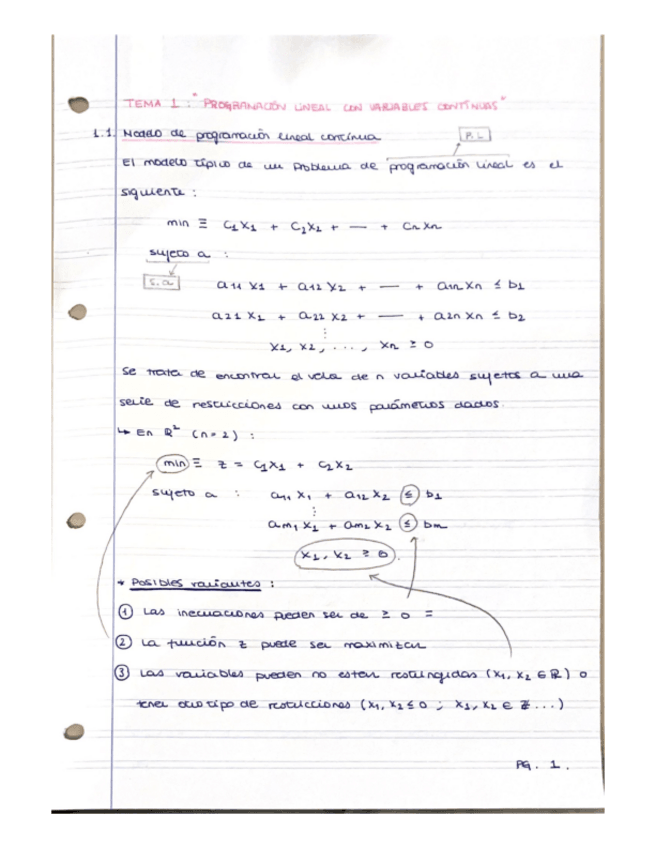 TEMA 1 : "PROGRAMACIÓN LINEAL CON VARIABLES CONTÍNUAS"
1.1. Modelo de programación lineal contínua
P.L
El modelo típico de un problema de programación lineal es el
siguiente :
min ≡ C₁X₁ + C₂X₂ + — + CnXn
sujeto a :
s.a
a₁₁ X₁ + a₁₂ X₂ + — + a₁nXn ≤ b₁
a₂₁ X₁ + a₂₂ X₂ + — + a₂nXn ≤ b₂
⋮
X₁, X₂, ..., Xn ≥ 0
Se trata de encontrar el valor de n variables sujetos a una
serie de restricciones con unos parámetros dados.
↳ En ℝ² (n=2) :
min ≡ z = C₁X₁ + C₂X₂
sujeto a : a₁₁ X₁ + a₁₂ X₂ ≤ b₁
⋮
am₁ X₁ + am₂ X₂ ≤ bm
X₁, X₂ ≥ 0.
* Posibles variantes :
① Las inecuaciones pueden ser de ≥ o =
② La función z puede ser maximizar
③ Las variables pueden no estar restringidas (X₁, X₂ ∈ ℝ) o
tener otro tipo de restricciones (X₁, X₂ ≤ 0 ; X₁, X₂ ∈ ℤ ...)
PG. 1.